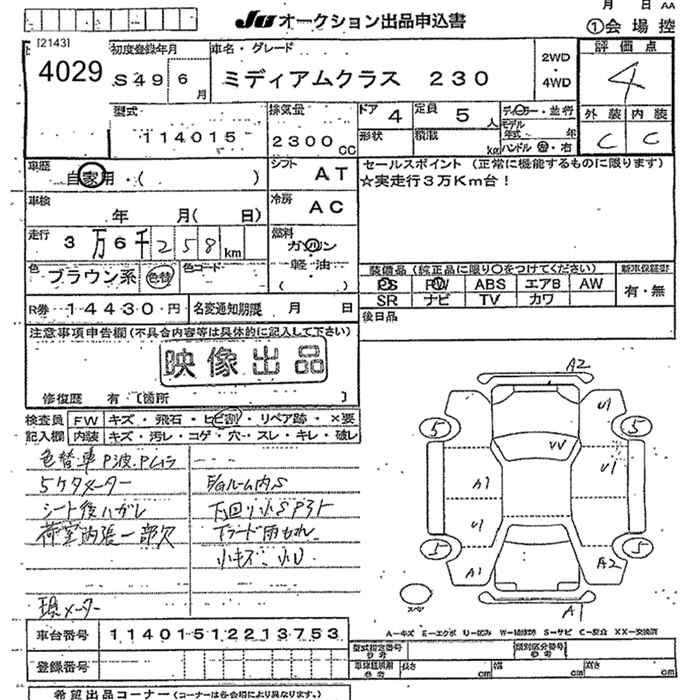 JU オークション出品申込書
月 日 AA
①会 場 控
[2143]
4029
初度登録年月
S49 6 月
車名・グレード
ミディアムクラス 230
2WD
・
4WD
評 価 点
4
型式
114015
排気量
2300 CC
ドア 4
定員 5 人
形状
積載 kg
ディーラー・並行
モデル
年式 年
ハンドル 左・右
外 装 内 装
C C
車歴
自家用・( )
シフト AT
セールスポイント (正常に機能するものに限ります)
☆実走行3万Km台!
車検
年 月( 日)
冷房 AC
走行 3万6千258km
燃料
ガソリン
軽・油
色 ブラウン系 色替
色コード
装備品(純正品に限り○をつけてください)
新車保証書
PS PW ABS エアB AW
有・無
SR ナビ TV カワ
R券 14430円
名変通知期限 月 日
後日品
注意事項申告欄(不具合内容等は具体的に記入して下さい)
映像出品
修復歴 有 (箇所 )
検査員 FW キズ・飛石・ヒビ割・リペア跡・×要
記入欄 内装 キズ・汚レ・コゲ・穴・スレ・キレ・破レ
色替車 P波.Pムラ
5ケタメーター
E/Gルーム内S
シート後ハガレ
下回り小SPヌト
荷室内張一部欠
小キズ.小U
現メーター
A2
U1
5 5
VV
U1
A1
U1
5 5
A1 A2
スペア
A1
A-キズ E-エクボ U-凹み W-補修跡 S-サビ C-腐食 XX-交換済
車台番号 11401512213753
登録番号
型式指定番号
参考
類別区分番号
参考
長さ cm 幅 cm 高さ cm
希望出品コーナー(コーナーは各会場により異なります。)